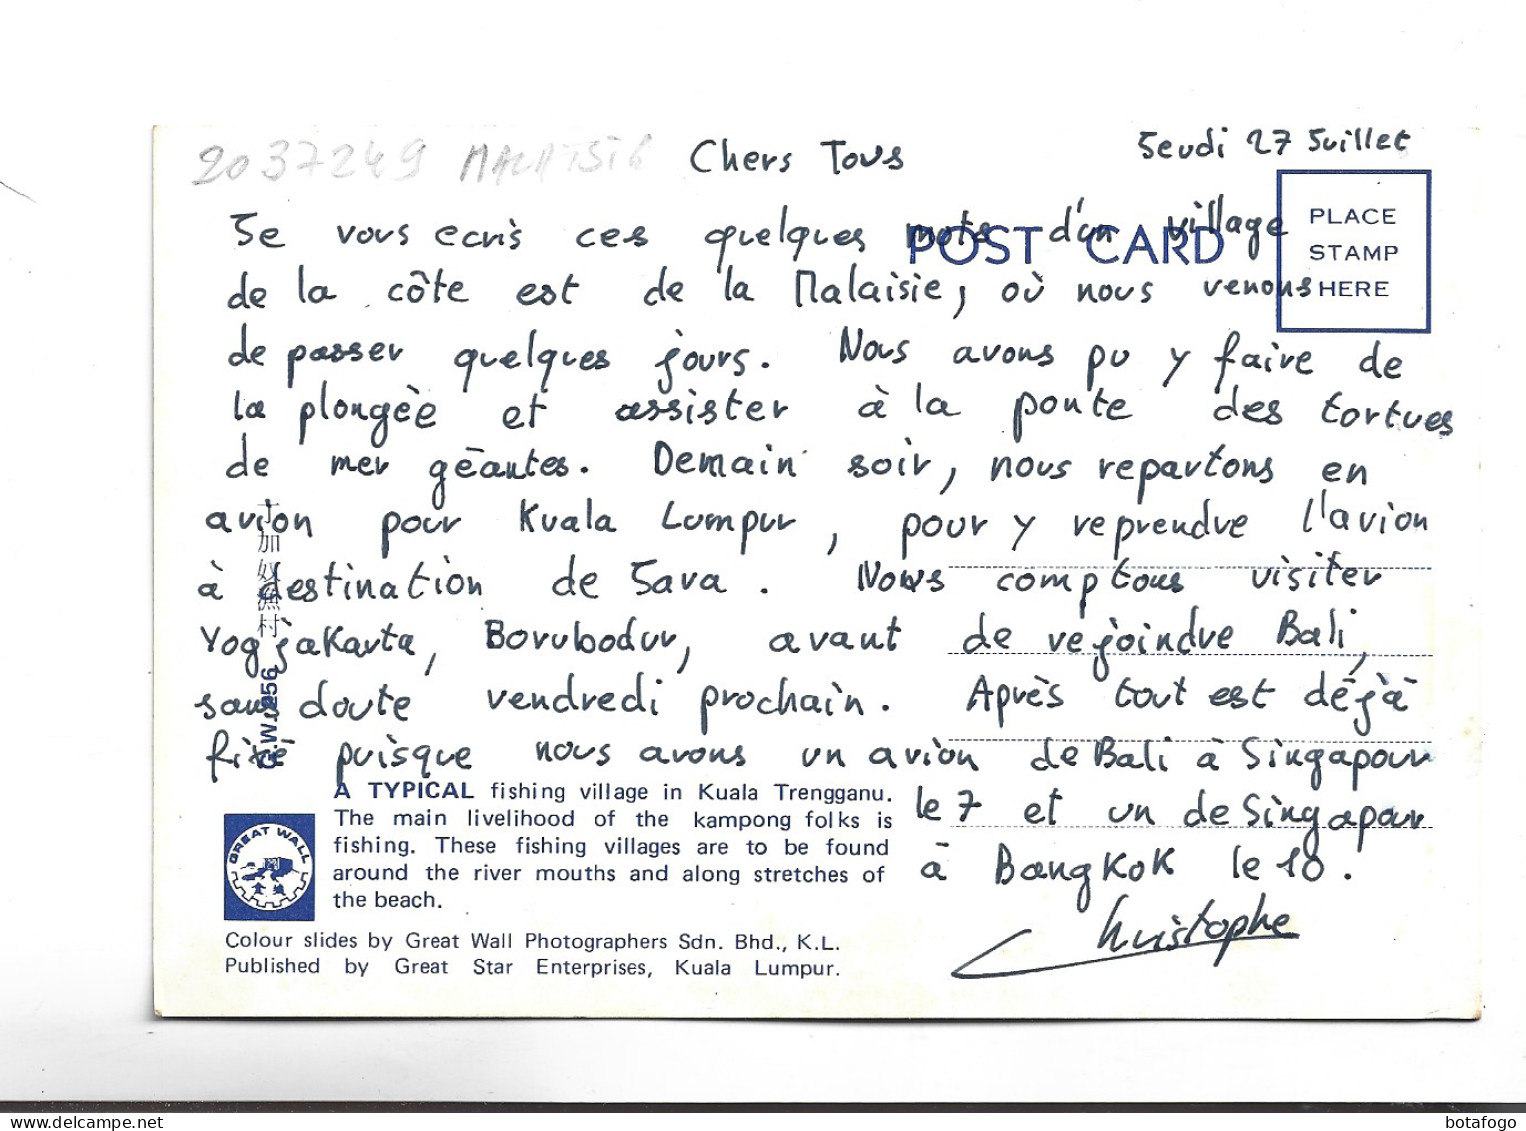 2037249 MALAISIE Chers Tous
Jeudi 27 Juillet
POST CARD
PLACE
STAMP
HERE
Je vous ecris ces quelques mots d'un village
de la côte est de la Malaisie, où nous venons
de passer quelques jours. Nous avons pu y faire de
la plongèe et assister à la ponte des tortues
de mer géantes. Demain soir, nous repartons en
avion pour Kuala Lumpur, pour y reprendre l'avion
à destination de Java. Nous comptons visiter
Yogjakarta, Borubodur, avant de rejoindre Bali,
sans doute vendredi prochain. Après tout est déjà
fixé puisque nous avons un avion de Bali à Singapour
le 7 et un de Singapour
à Bangkok le 10.
Christophe
丁加奴漁村
G.W. 256
A TYPICAL fishing village in Kuala Trengganu.
The main livelihood of the kampong folks is
fishing. These fishing villages are to be found
around the river mouths and along stretches of
the beach.
GREAT WALL
Colour slides by Great Wall Photographers Sdn. Bhd., K.L.
Published by Great Star Enterprises, Kuala Lumpur.
delcampe.net
botafogo